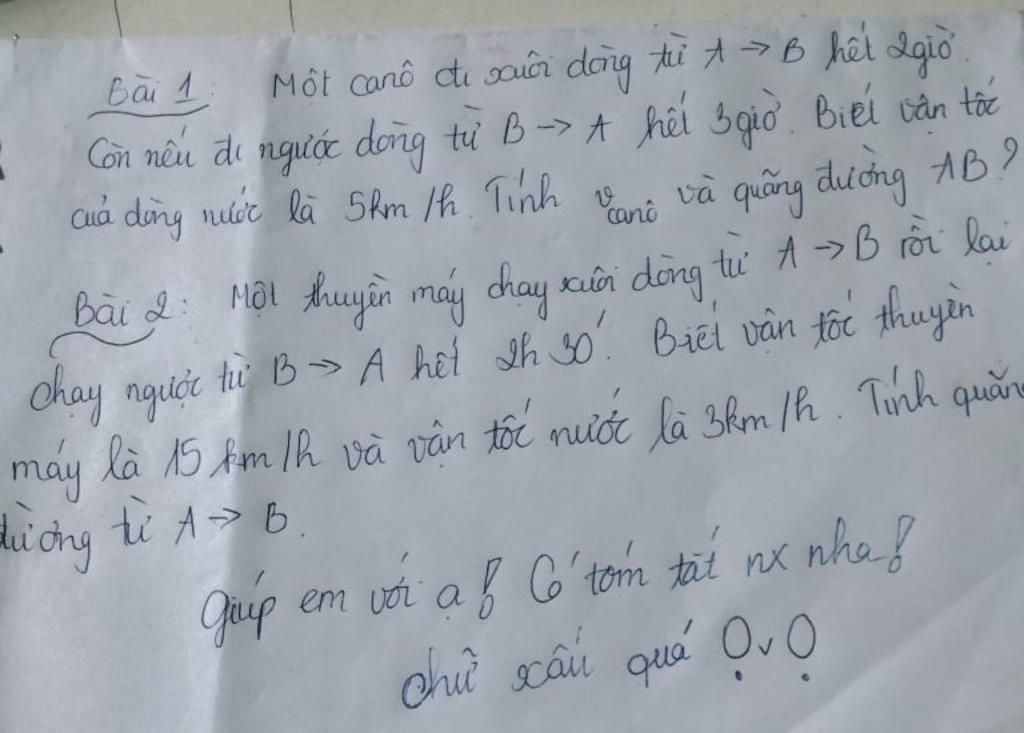 Bài 1: Một canô đi xuôi dòng từ A → B hết 2giờ.
Còn nếu đi ngược dòng từ B → A hết 3giờ. Biết vận tốc
của dòng nước là 5km/h. Tính v canô và quãng đường AB?
Bài 2: Một thuyền máy chạy xuôi dòng từ A → B rồi lại
chạy ngược từ B → A hết 2h 30'. Biết vận tốc thuyền
máy là 15 km/h và vận tốc nước là 3km/h. Tính quãng
đường từ A → B.
Giúp em với ạ! Có tóm tắt nx nha!
chữ xấu quá ỌvỌ